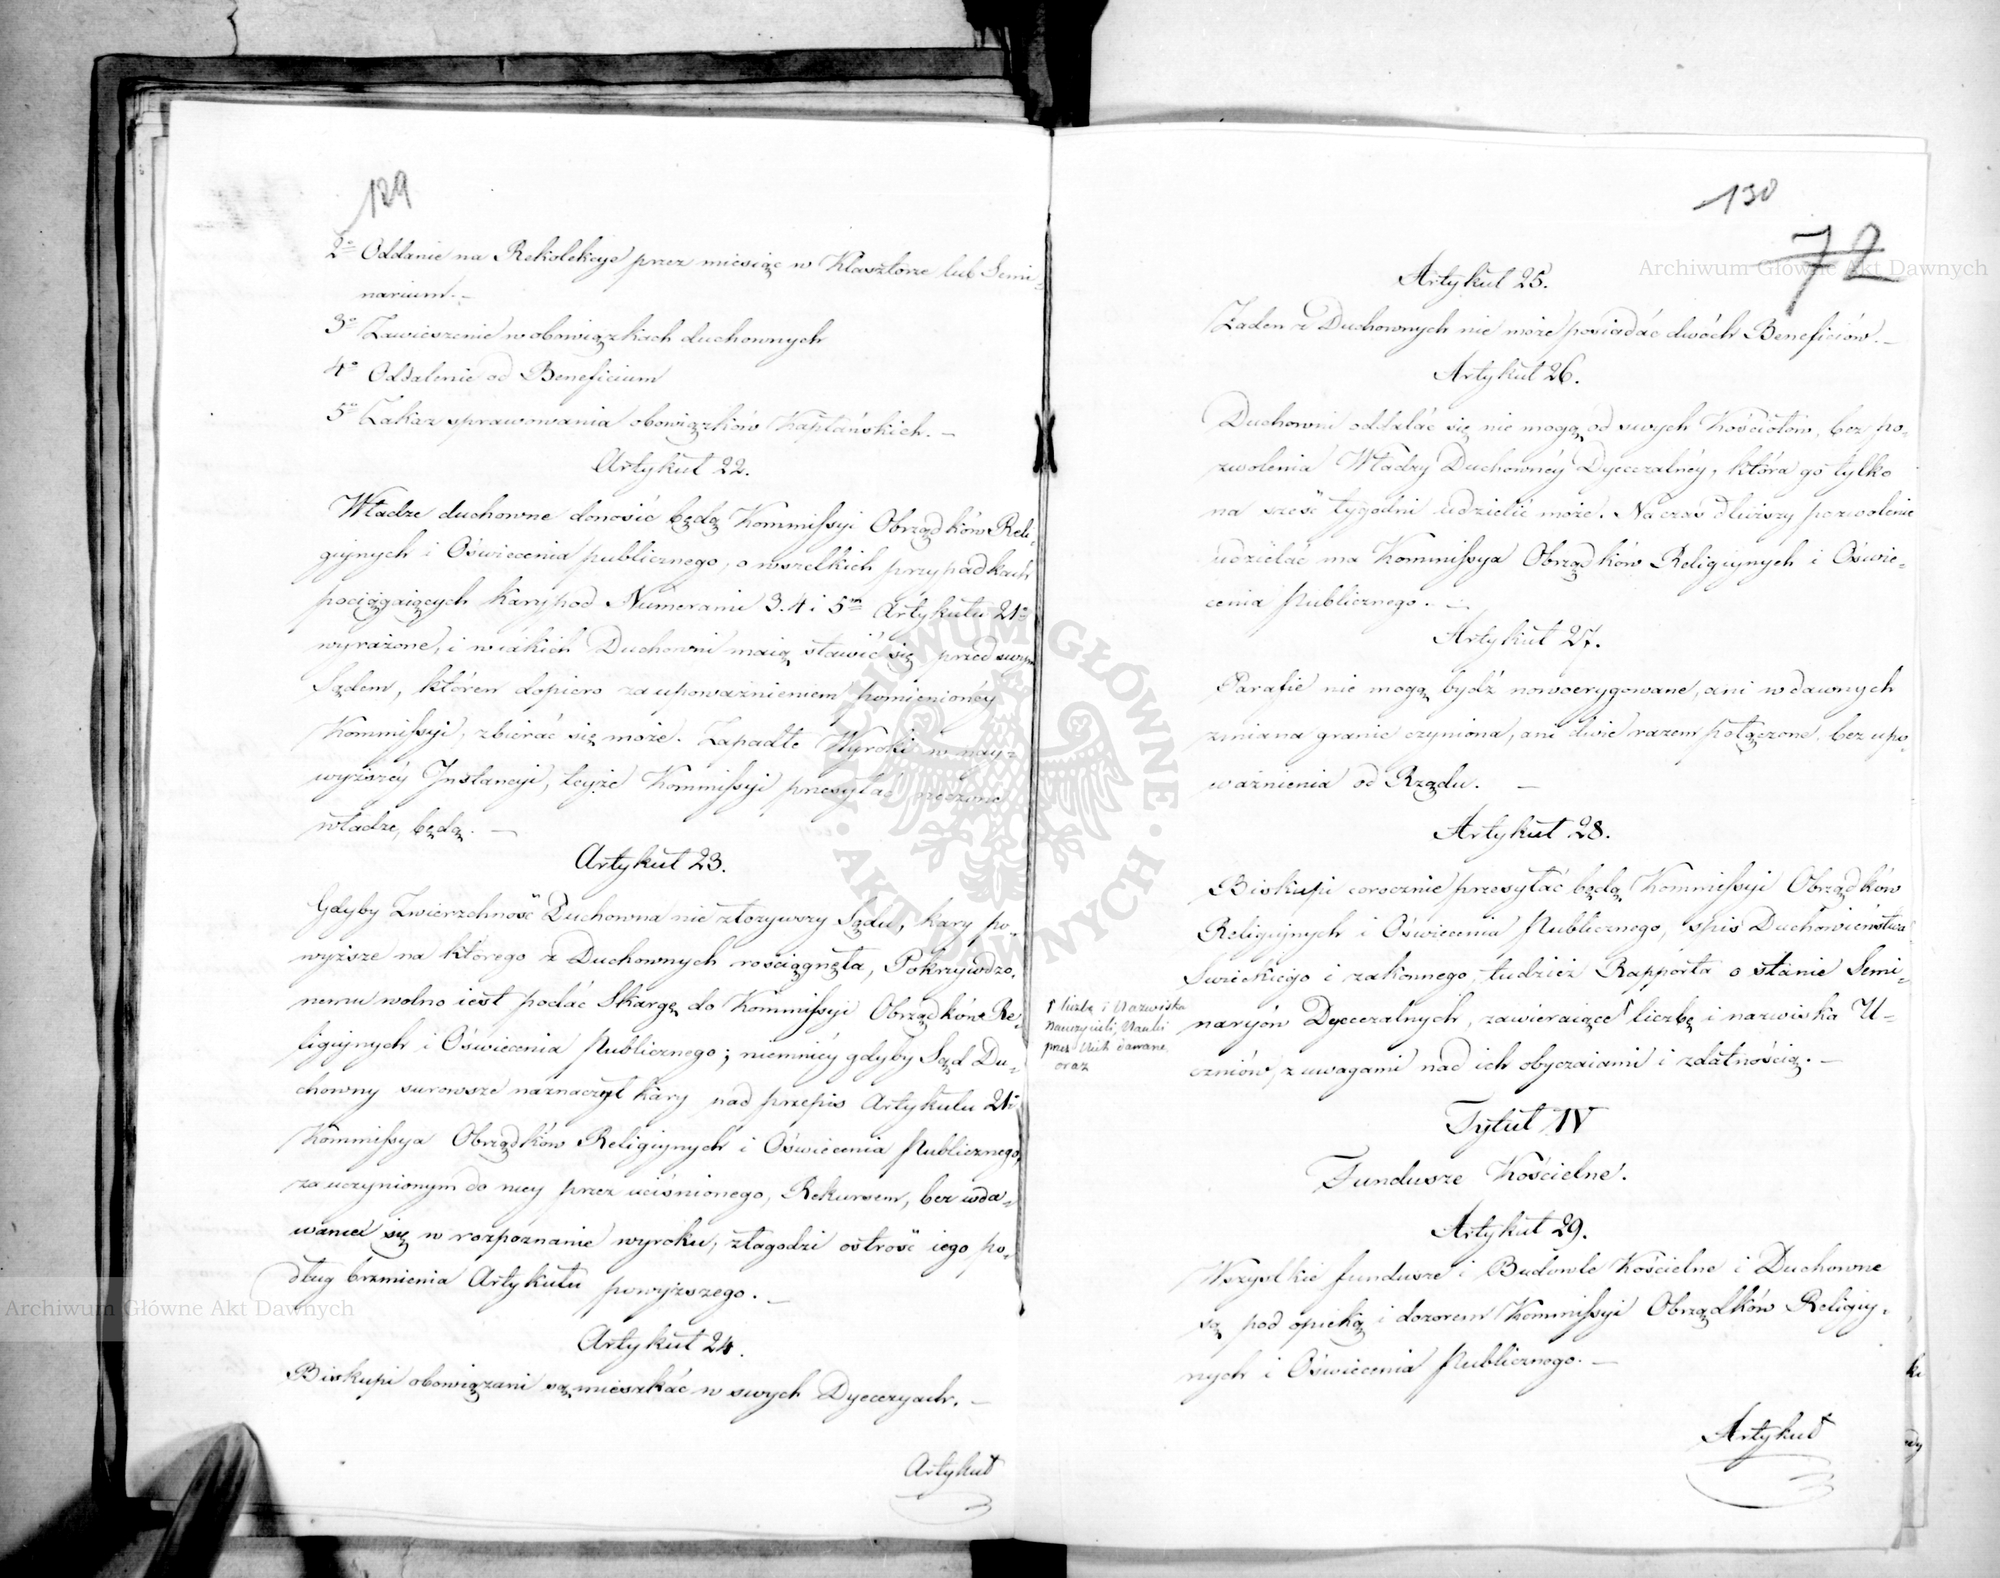 129
2o Oddanie na Rekolekcye przez miesiąc w Klasztorze lub Semi-
narium. –
3o Zawieszenie w obowiązkach duchownych
4o Oddalenie od Beneficium
5o Zakaz sprawowania obowiązków Kapłańskich. –
Artykuł 22.
Władze duchowne donosić będą Kommissyi Obrządków Reli-
giynych i Oświecenia publicznego, o wszelkich przypadkach
pociągaiących kary pod Numerami 3. 4 i 5m Artykułu 21o
wyrażone, i w iakich Duchowni maią stawić się przed swym
Sądem, któren dopiero za upoważnieniem pomienionéy
Kommissyi, zbierać się może. Zapadłe Wyroki w nay-
wyższéy Instancyi, teyże Kommissyi przesyłać rzeczone
władze, będą. –
Artykuł 23.
Gdyby Zwierzchność Duchowna nie złożywszy Sądu, kary po-
wyższe na którego z Duchownych rościągnęła, Pokrzywdzo-
nemu wolno iest podać Skargę do Kommissyi Obrządków Re-
ligiynych i Oświecenia Publicznego; niemniéy gdyby Sąd Du-
chowny surowsze naznaczył kary nad przepis Artykułu 21o
Kommissya Obrządków Religiynych i Oświecenia Publicznego,
za uczynionym do niey przez uciśnionego, Rekursem, bez wda-
wania się w rozpoznanie wyroku, złagodzi ostrość iego po-
dług brzmienia Artykułu powyższego. –
Artykuł 24.
Biskupi obowiązani są mieszkać w swych Dyecezyach. –
Artykuł
130
72
Artykuł 25.
Żaden z Duchownych nie może posiadać dwóch Beneficiów. –
Artykuł 26.
Duchowni oddalać się nie mogą od swych Kościołów, bez po-
zwolenia Władzy Duchownéy Dyecezalnéy, która go tylko
na sześć tygodni udzielić może. Na czas dłuższy pozwolenie
udzielać ma Kommissya Obrządków Religiynych i Oświe-
cenia Publicznego. –
Artykuł 27.
Parafie nie mogą bydź nowoerygowane, ani w dawnych
zmiana granic czyniona, ani dwie razem połączone, bez upo-
ważnienia od Rządu. –
Artykuł 28.
Biskupi corocznie przesyłać będą Kommissyi Obrządków
Religiynych i Oświecenia Publicznego, spis Duchowieństwa
Swieckiego i zakonnego, tudzież Rapporta o stanie Semi-
naryów Dyecezalnych, zawieraiące liczbę i nazwiska U-
czniów, z uwagami nad ich obyczaiami i zdatnością. –
liczbę i Nazwiska
Nauczycieli, Nauki
przez Nich dawane,
oraz
Tytuł IV
Fundusze Kościelne.
Artykuł 29.
Wszystkie fundusze i Budowle Kościelne i Duchowne
są pod opieką i dozorem Kommissyi Obrządków Religiy-
nych i Oświecenia Publicznego. –
Artykuł
Archiwum Główne Akt Dawnych
Archiwum Główne Akt Dawnych
ARCHIWUM GŁÓWNE AKT DAWNYCH